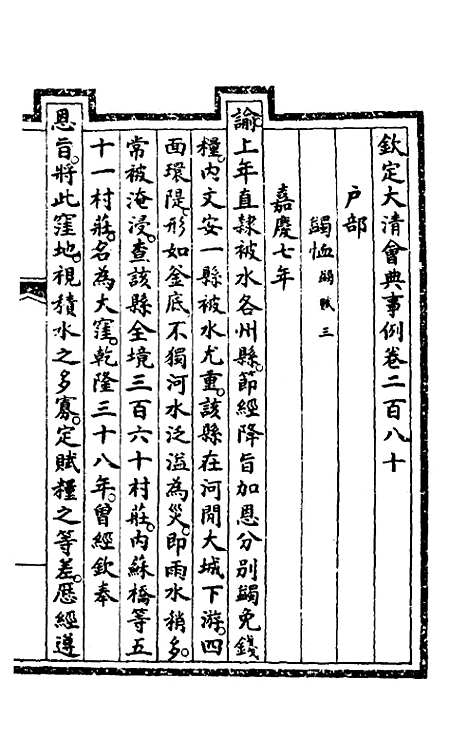 欽定大清會典事例卷二百八十
戶部
蠲恤蠲賦三
嘉慶七年
諭上年直隸被水各州縣。節經降旨加恩分別蠲免錢
糧。內文安一縣被水尤重。該縣在河閒大城下游。四
面環隄。形如釜底不獨河水泛溢為災。即雨水稍多。
常被淹浸。查該縣全境三百六十村莊。內蘇橋等五
十一村莊。名為大窪。乾隆三十八年。曾經欽奉
恩旨。將此窪地。視積水之多寡。定賦糧之等差。歷經遵